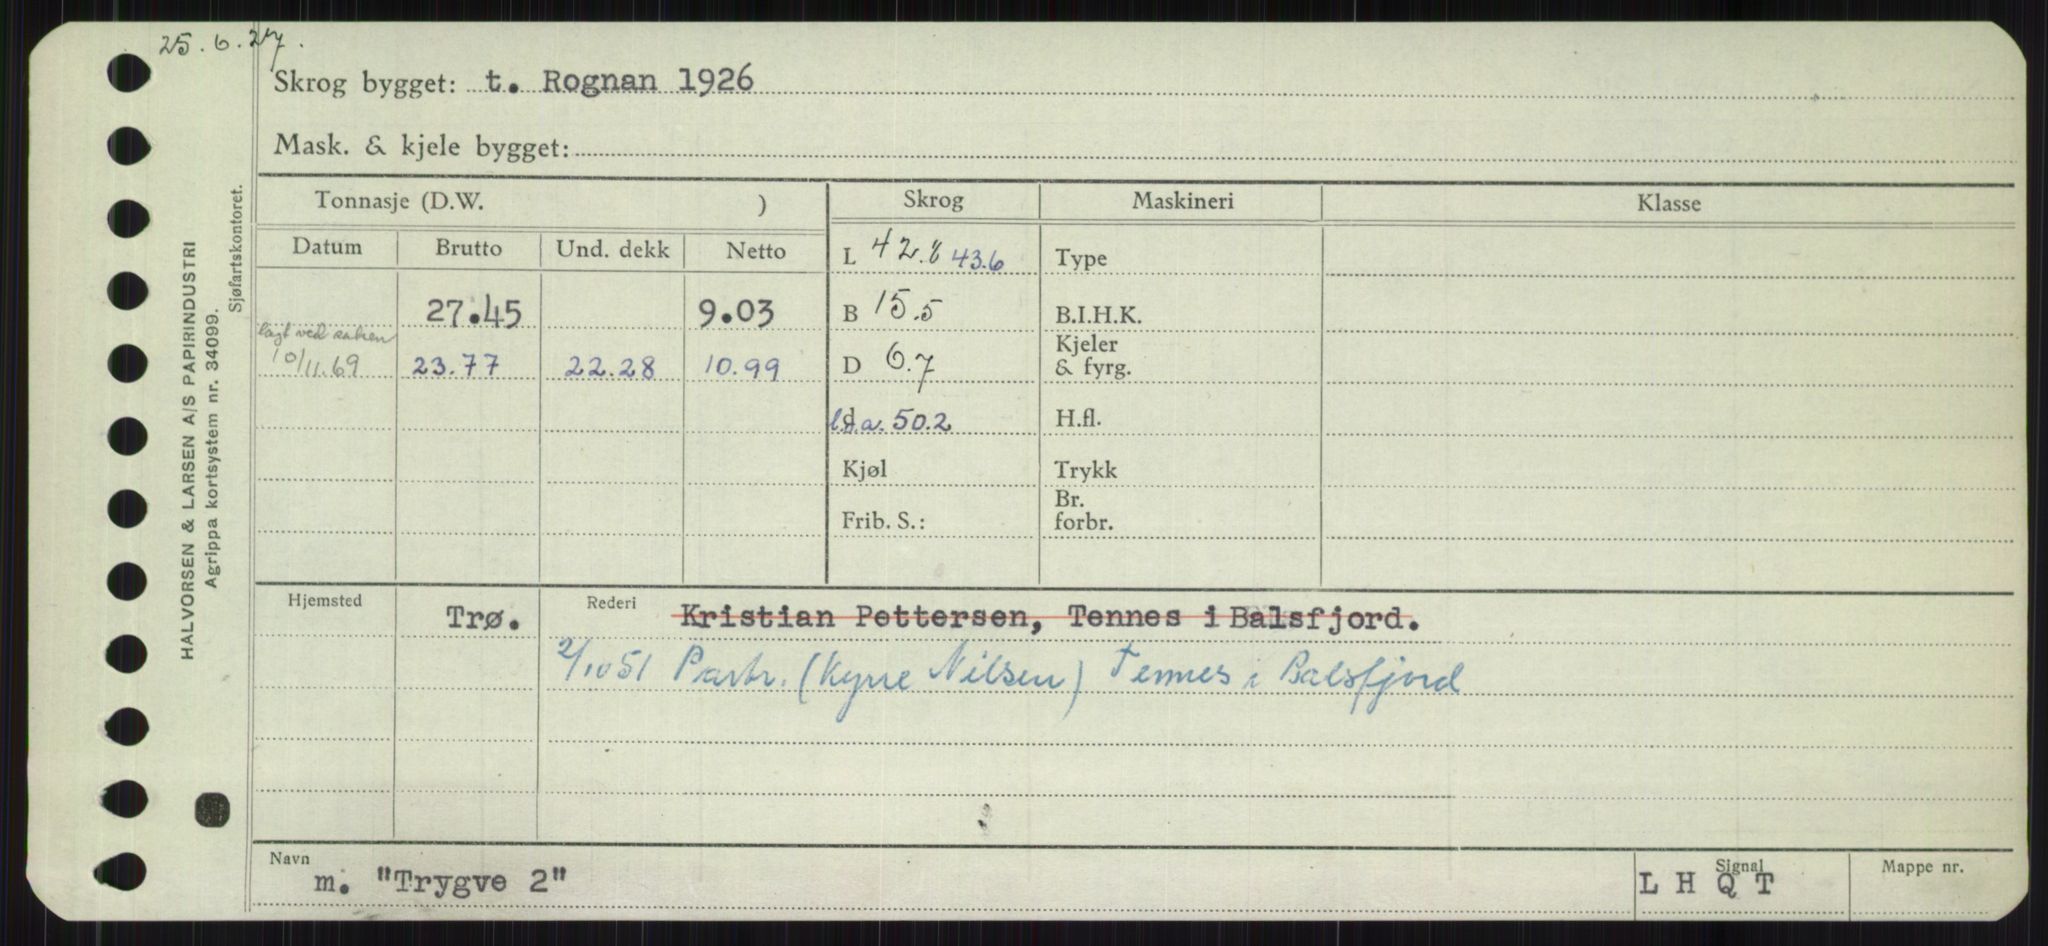 25.6.27.
Skrog bygget: t. Rognan 1926
Mask. & kjele bygget:
Tonnasje (D.W. ) Skrog Maskineri Klasse
Datum Brutto Und. dekk Netto L 42.8 43.6 Type
27.45 9.03 B 15.5 B.I.H.K.
lagt ved saken
10/11.69 23.77 22.28 10.99 D 6.7 Kjeler & fyrg.
d l.o.a. 50.2 H.fl.
Kjøl Trykk
Frib. S.: Br. forbr.
Hjemsted Trø. Rederi Kristian Pettersen, Tennes i Balsfjord.
2/10 51 Partr. (Kyrre Nilsen) Tennes i Balsfjord
Navn Signal Mappe nr.
m. "Trygve 2" L H Q T
HALVORSEN & LARSEN A/S PAPIRINDUSTRI
Agrippa kortsystem nr. 34099.
Sjøfartskontoret.